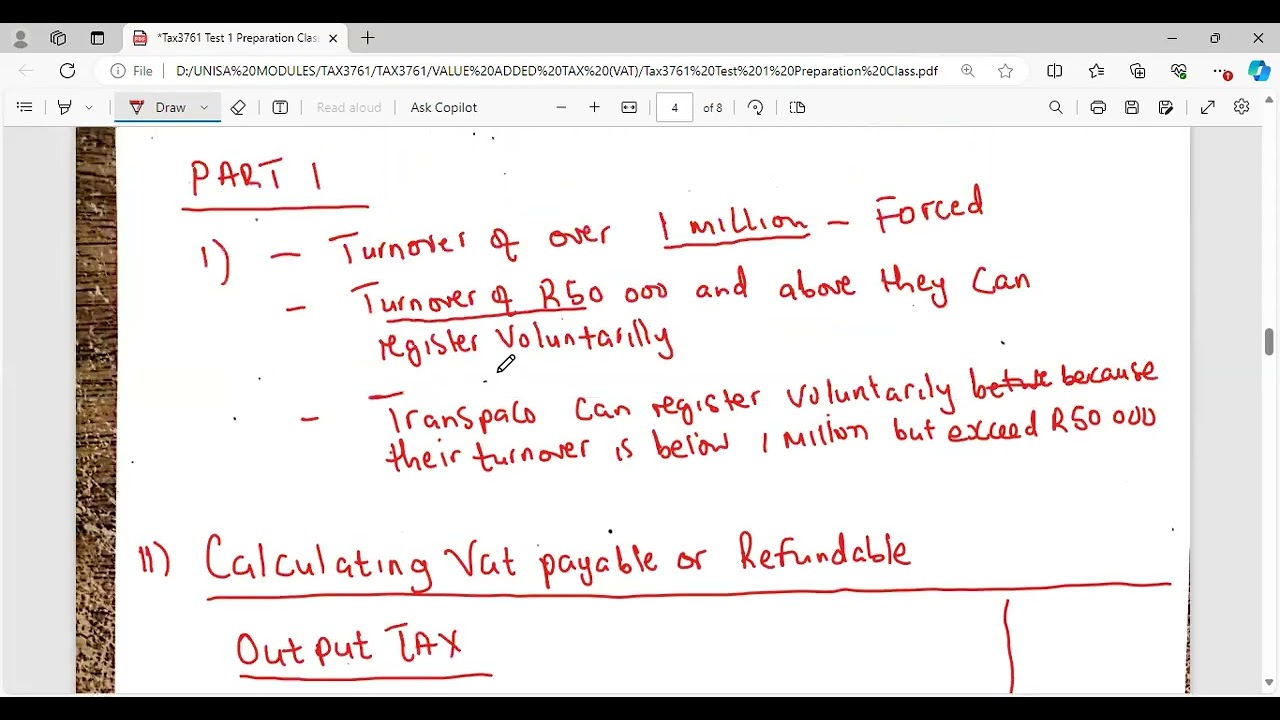 *Tax3761 Test 1 Preparation Clas
File
D:/UNISA%20MODULES/TAX3761/TAX3761/VALUE%20ADDED%20TAX%20(VAT)/Tax3761%20Test%201%20Preparation%20Class.pdf
Draw
Read aloud
Ask Copilot
4 of 8
PART 1
1) - Turnover of over 1 million - Forced
- Turnover of R50 000 and above they can
register voluntarilly
- Transpaco can register voluntarily because
their turnover is below 1 million but exceed R50 000
11) Calculating Vat payable or Refundable
Output TAX